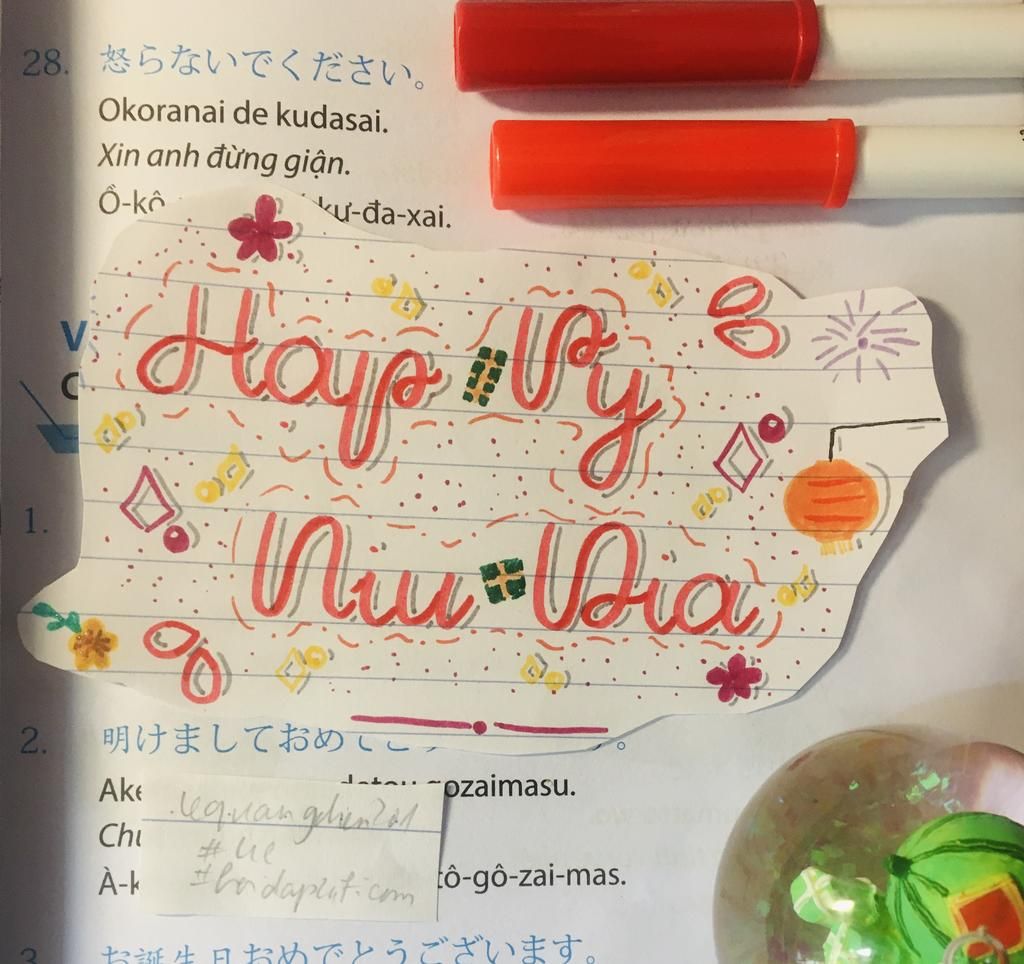 28. 怒らないでください。
Okoranai de kudasai.
Xin anh đừng giận.
Ồ-kô kư-đa-xai.
V
C
Hap Py
1.
Niu Dia
2. 明けましておめで
Ake gozaimasu.
Chú
.lequanghien201
À-k tô-gô-zai-mas.
#
3. お誕生日おめでとうございます。